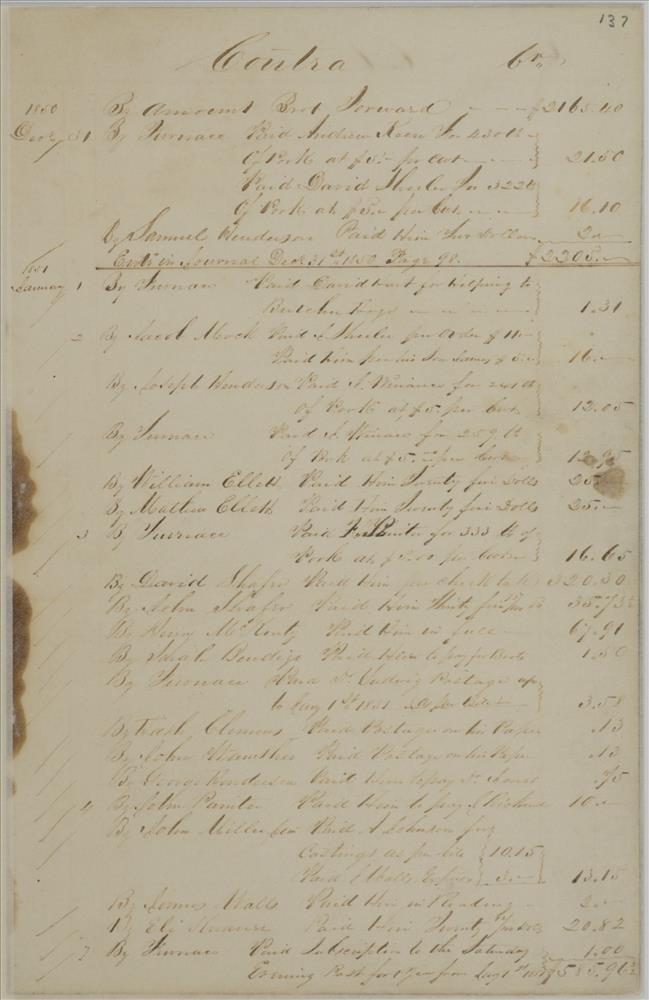 137
Contra Cr.
1850 By Amount Brot Forward $2165.40
Decr 31 By Furnace Paid Andrew Keen for 430 lb
Of Pork at $5 per cwt 21.50
Paid David Sheeler for 322 lb
Of Pork at $5 per Cwt 16.10
By Samuel Henderson Paid Him Two Dollars 2
Entd in Journal Dec 31st 1850 Page 98. $2205.
1851
January 1 By Furnace Paid David for helping to
Butcher Hogs 1.31
2 By Jacob Mock Paid Sheeler per Order $11
Paid Him per his Son James $5 16.
By Joseph Henderson Paid J. for 241 lb
Of Pork at $5 per Cwt. 12.05
By Furnace Paid J. for 259 lb
Of Pork at $5. per Cwt 12.95
By William Ellett Paid Him Twenty five Dolls 25
By Mathew Ellett Paid Him Twenty five Dolls 25
3 By Furnace Paid for 333 lb of
Pork at $5.00 per Cwt 16.65
By David Shafer Paid Him per check 320.30
By John Shafer Paid Him Thirty five 35.73½
By Henry McEnty Paid Him in full 67.91
By Sarah Bendigo Paid to pay for Boots 1.50
By Furnace Paid D. Ludwig Postage up
to Jany 1st 1851 as per 3.58
By Clemens Paid Postage on his Paper .13
By John Paid Postage on his Paper .13
By George Henderson Paid Him to pay .75
4 By John Painter Paid Him to pay 10
By John Miller Paid A Johnson for
Castings as per bill 10.15
Paid 3. 13.15
By James Wall Paid Him in 2
By Eli Paid Him Twenty 20.82
7 By Furnace Paid Subscription to the Saturday 1.00
Evening Post for 1 Year from Jany 1st 1851 $585.96½